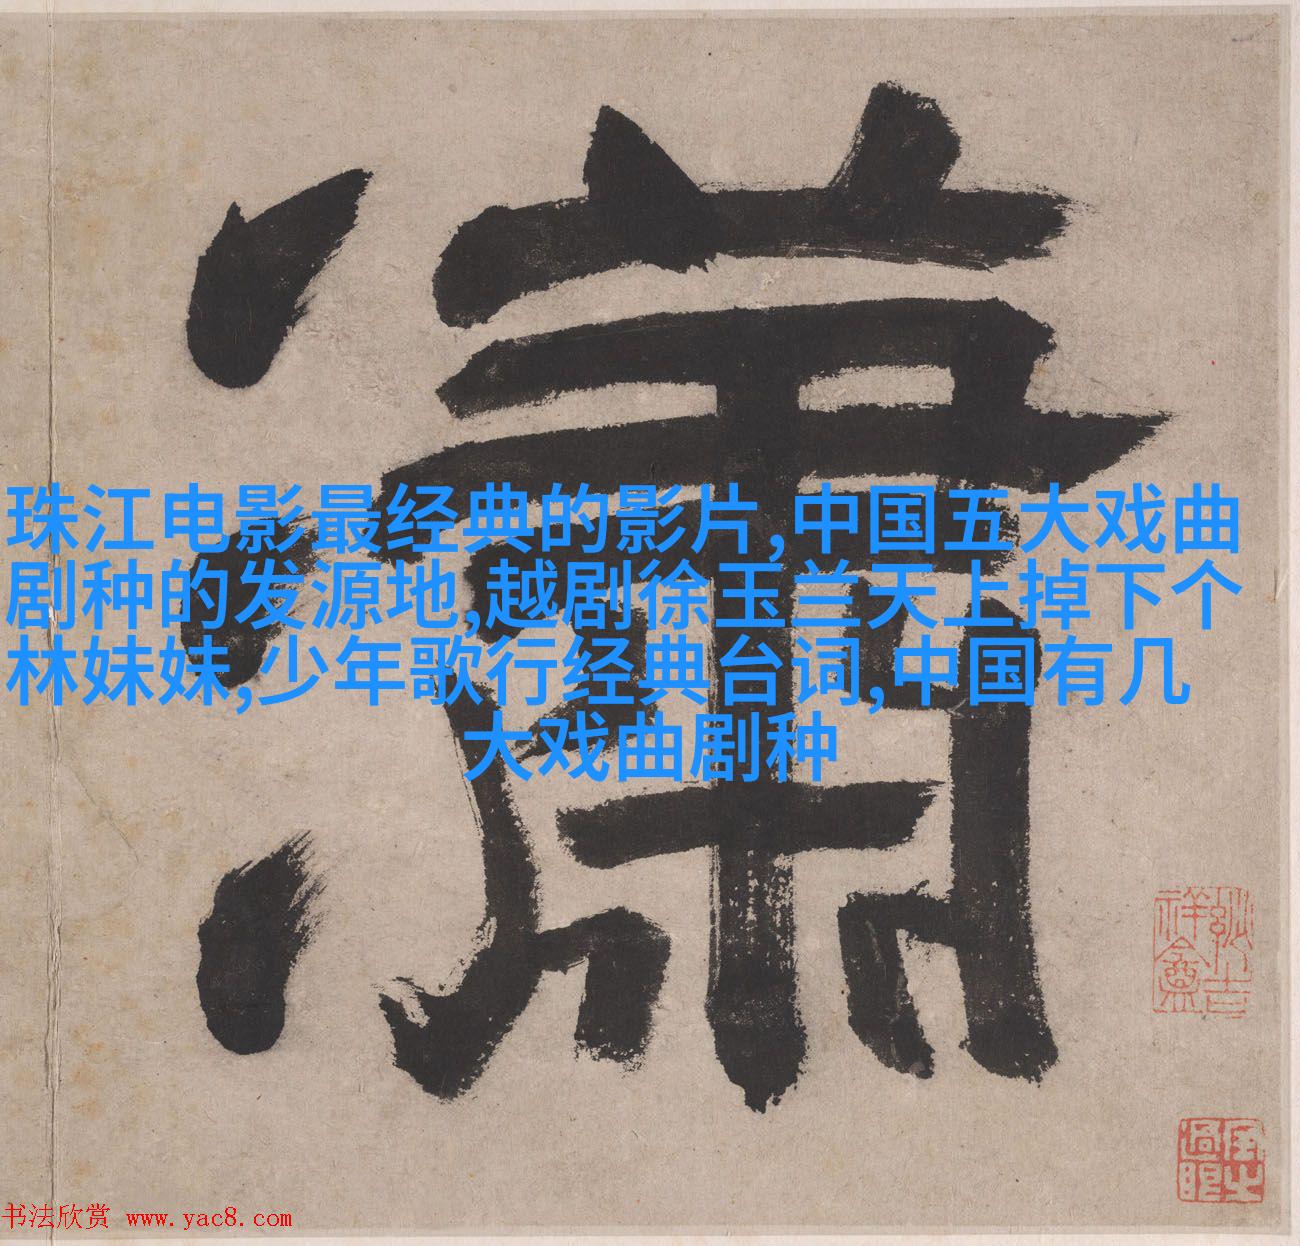 潇
珠江电影最经典的影片,中国五大戏曲
剧种的发源地,越剧徐玉兰天上掉下个
林妹妹,少年歌行经典台词,中国有几
大戏曲剧种
书法欣赏 www.yac8.com